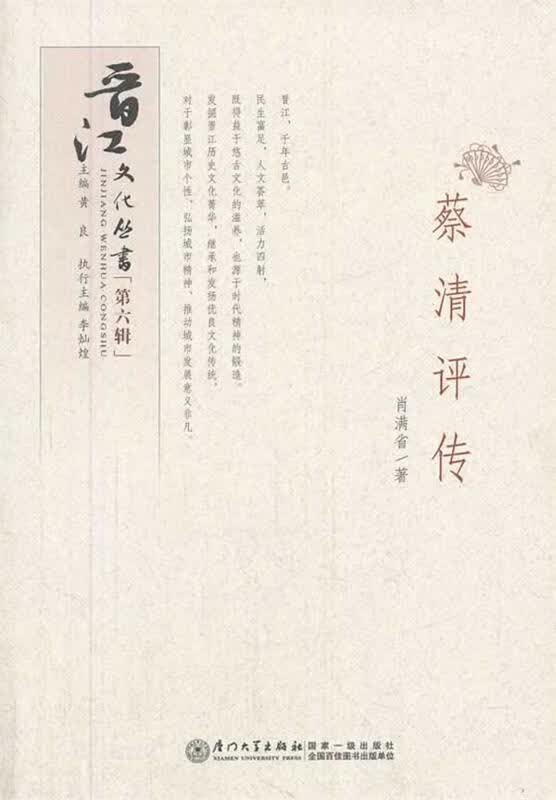 蔡清评传
肖满省/著
晋江，千年古邑。
民生富足，人文荟萃，活力四射，
既得益于悠古文化的滋养，也源于时代精神的锻造。
发掘晋江历史文化菁华，继承和发扬优良文化传统，
对于彰显城市个性、弘扬城市精神、推动城市发展意义非凡。
晋江
文化丛书「第六辑」
JINJIANG WENHUA CONGSHU
主编 黄 良 执行主编 李灿煌
厦门大学出版社
XIAMEN UNIVERSITY PRESS
国家一级出版社
全国百佳图书出版单位